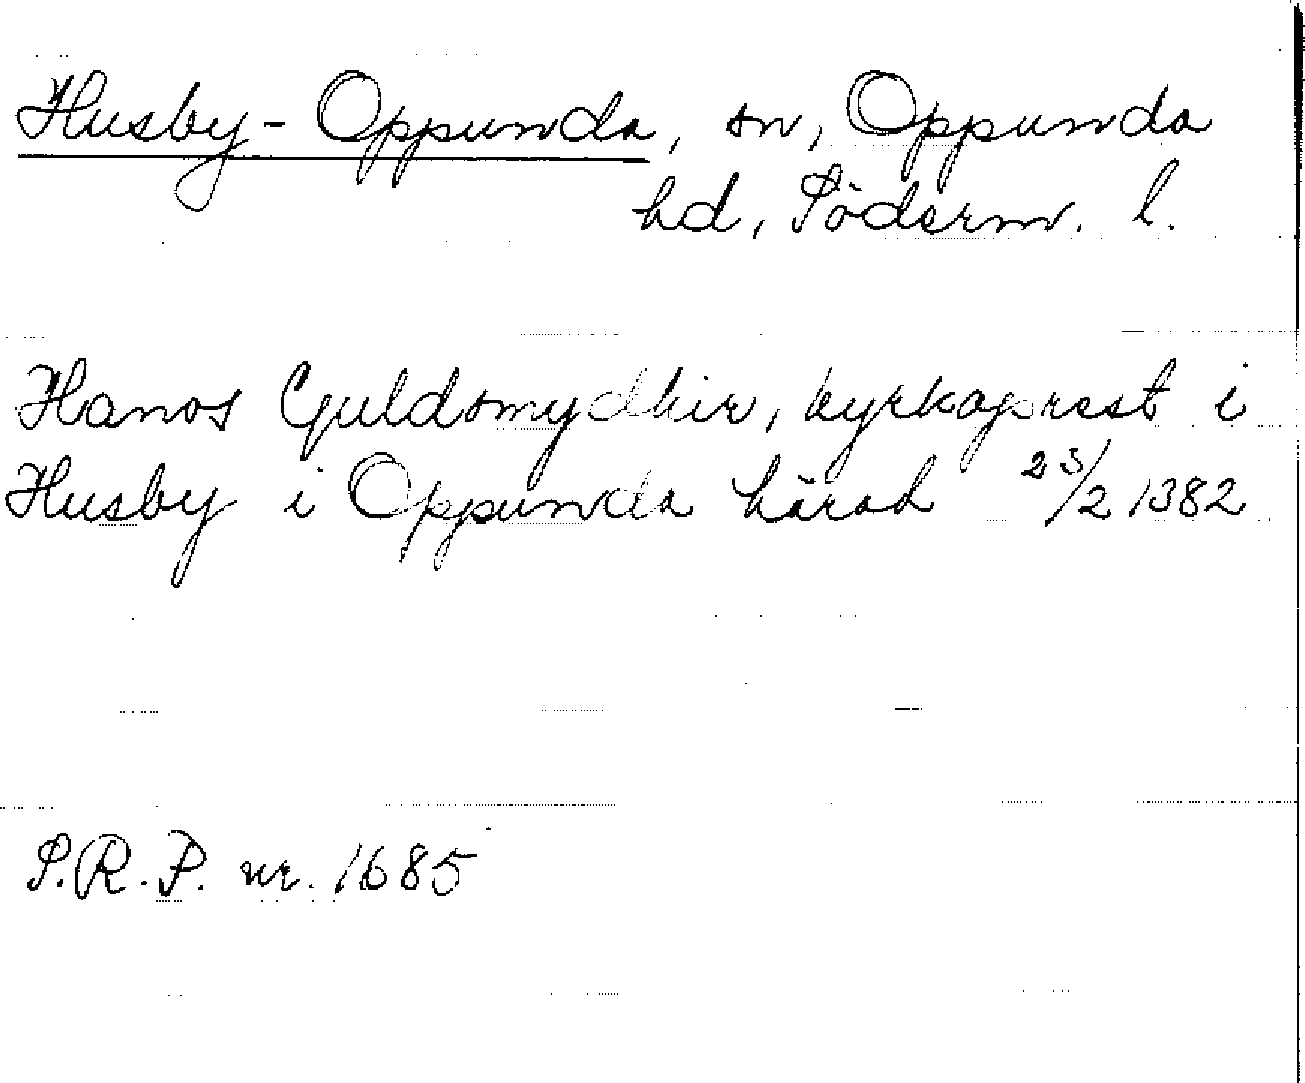 Husby-Oppunda, sn, Oppunda
hd, Söderm. l.
Hanos Guldsmydhir, kyrkaprest i
Husby i Oppunda härad 23/2 1382
S.R.P. nr. 1685